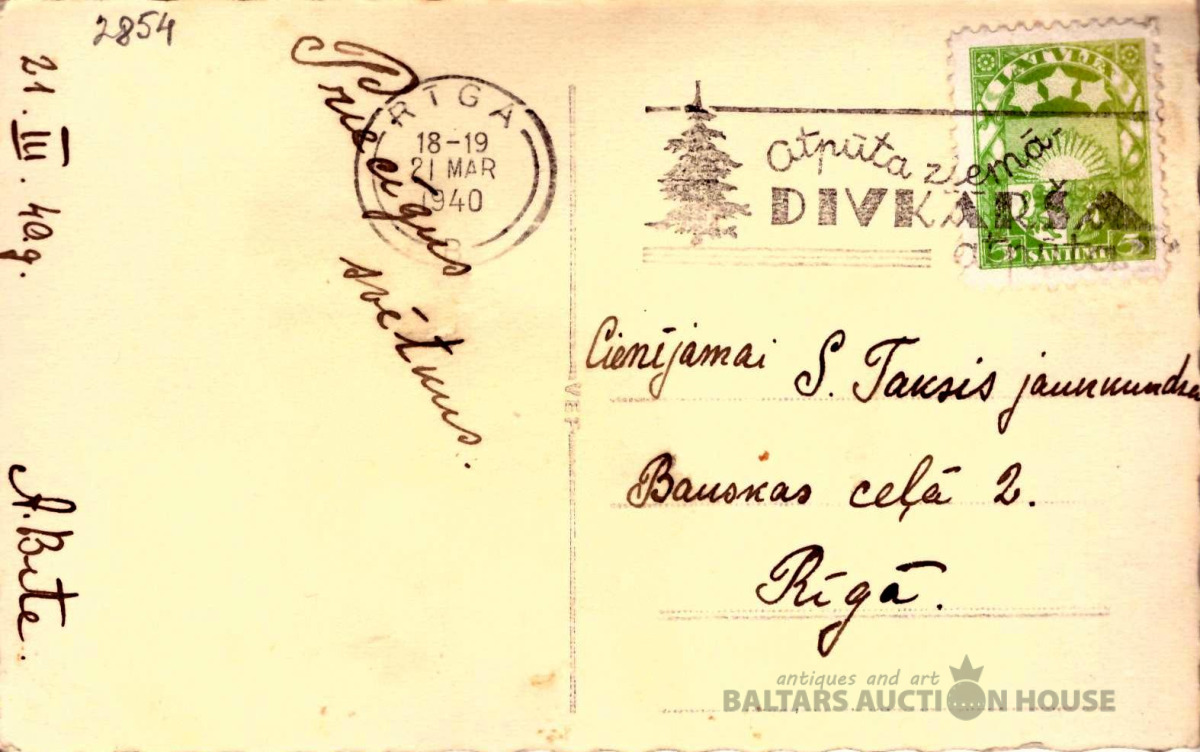 2854
21. III. 40g.
Priecīgus
svētkus.
A. Bite.
RĪGA
18-19
21 MAR
1940
atpūta ziemā
DIVKĀRŠA
atpūta
LATVIJA
5 SANTIMI 5
VEF
Cienījamai S. Taksis jaunkundzei
Bauskas ceļā 2.
Rīgā.
antiques and art
BALTARS AUCTION HOUSE